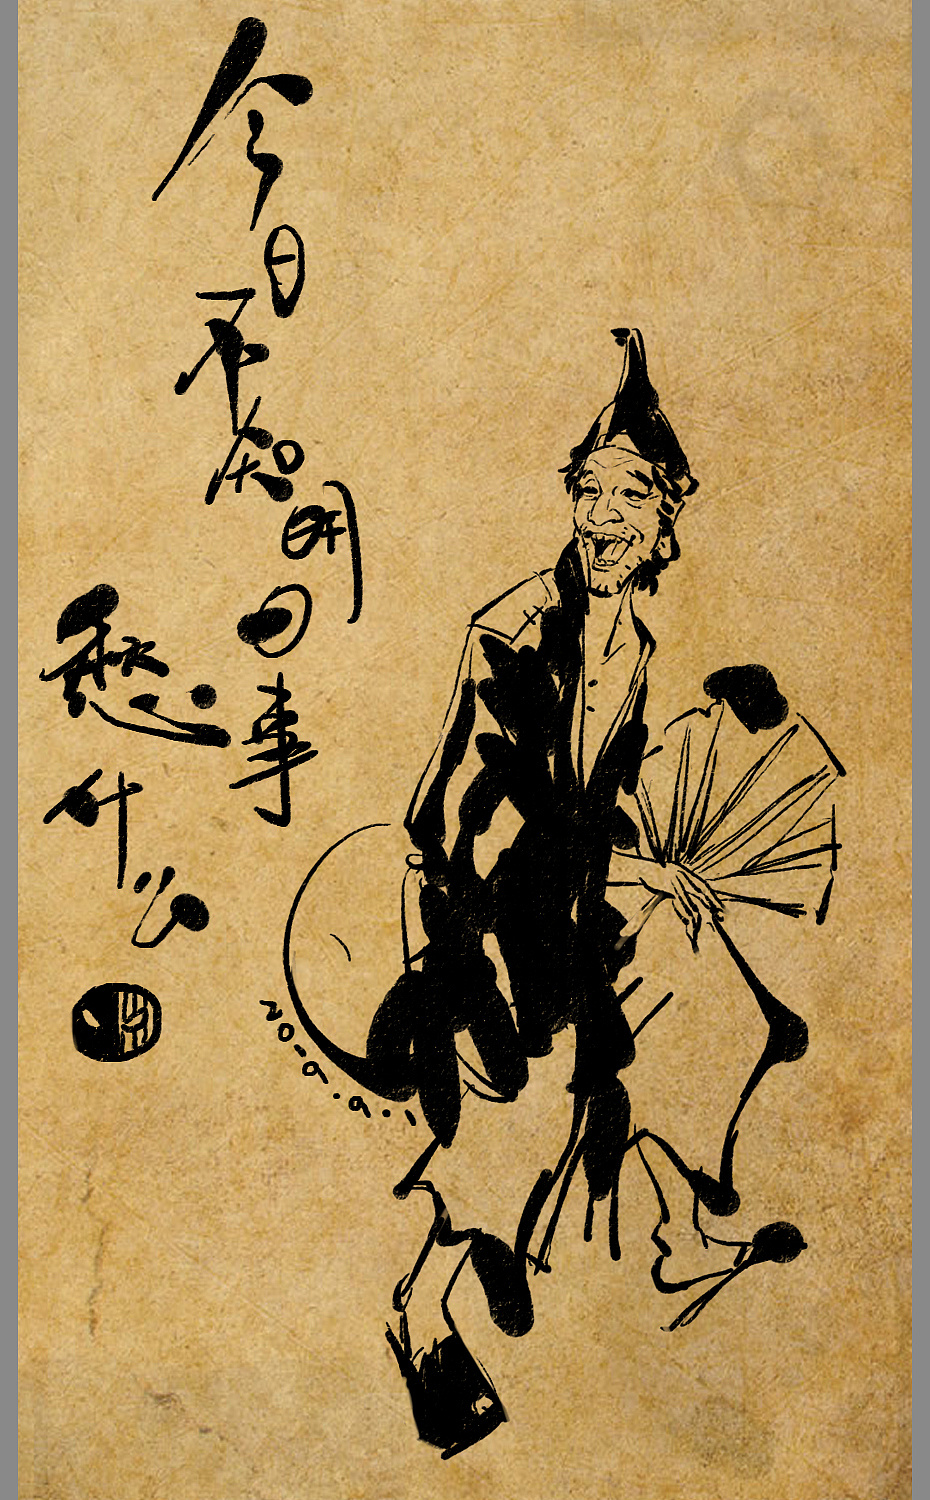 今日不知明日事
愁什么
2019.9.1